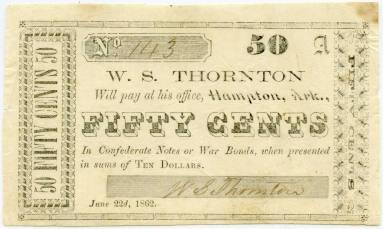 50 FIFTY CENTS 50
No. 143 50 A
W. S. THORNTON
Will pay at his office, Hampton, Ark.,
FIFTY CENTS
In Confederate Notes or War Bonds, when presented
in sums of TEN DOLLARS.
W. S. Thornton
June 22d, 1862.
FIFTY CENTS